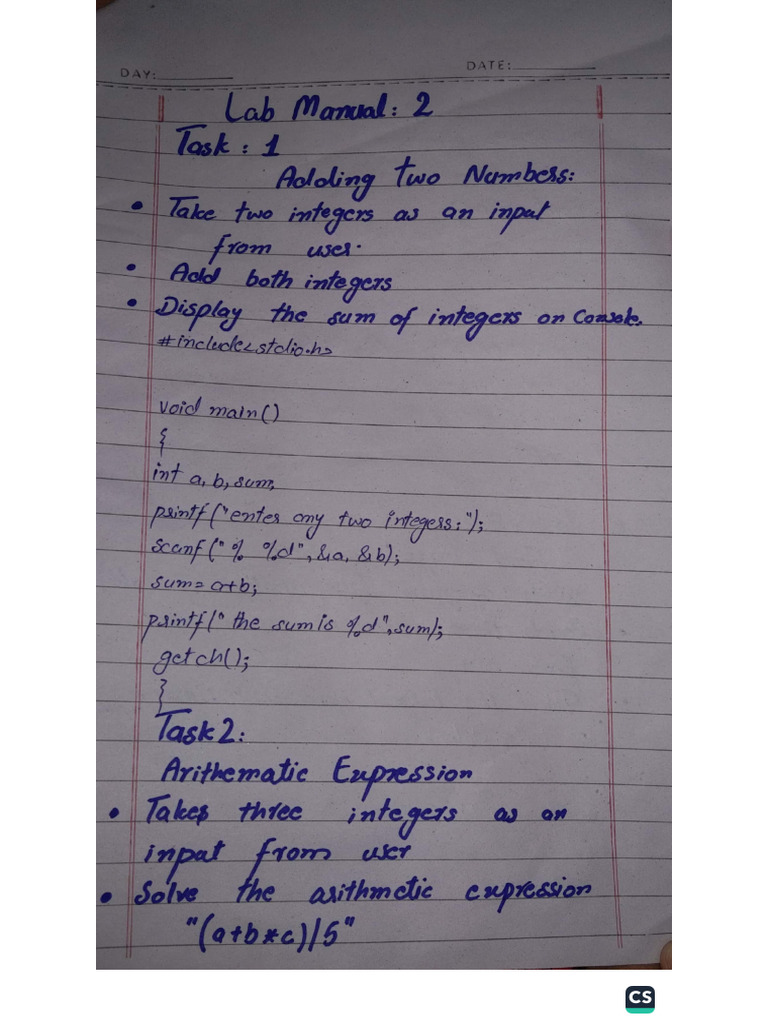 DAY:
DATE:
Lab Manual: 2
Task: 1
Adding two Numbers:
• Take two integers as an input
from user.
• Add both integers
• Display the sum of integers on Console.
#include<stdio.h>
void main()
{
int a, b, sum,
printf("enter any two integers:");
scanf("% %d", &a, &b);
sum=a+b;
printf(" the sum is %d", sum);
getch();
}
Task 2:
Arithematic Expression
• Takes three integers as an
input from user
• Solve the arithmetic expression
"(a+b*c)/5"
CS